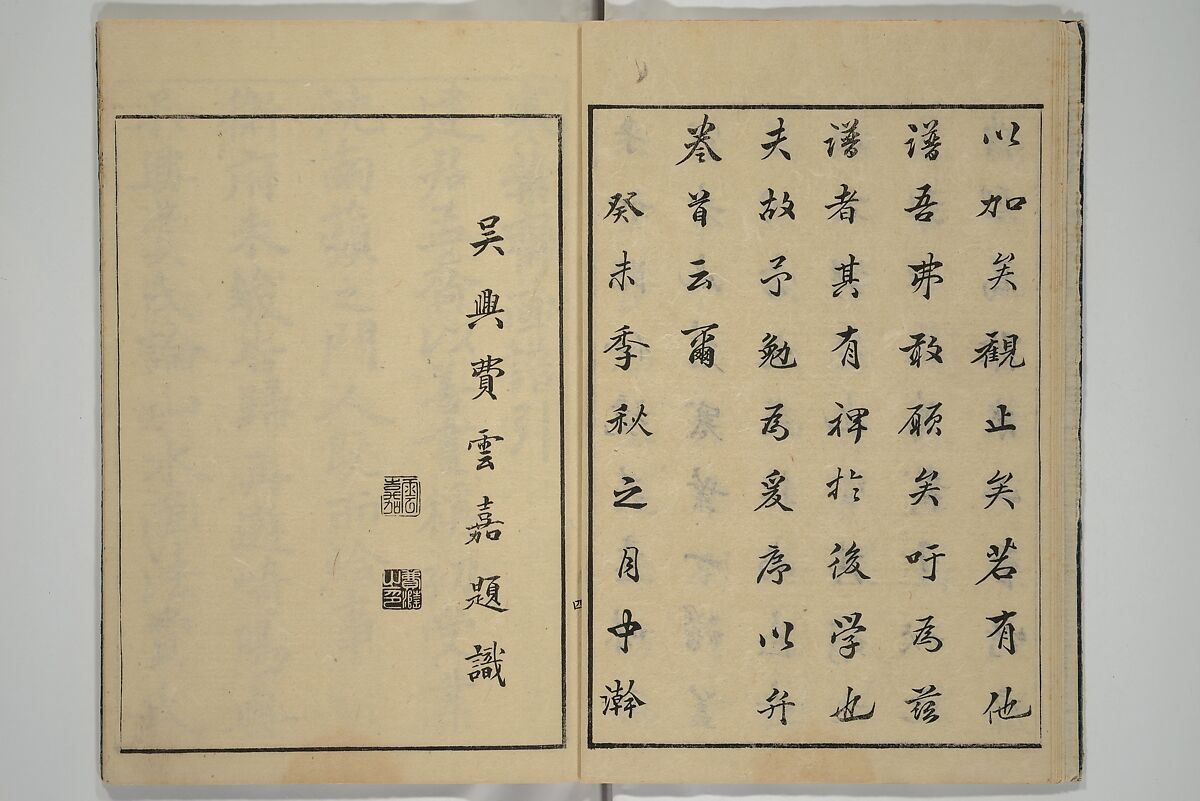 以加矣觀止矣若有他
譜吾弗敢願矣吁為茲
譜者其有裨於後学也
夫故予勉為爰序以弁
卷首云爾
癸未季秋之月中澣
吳興費雲嘉題識
四